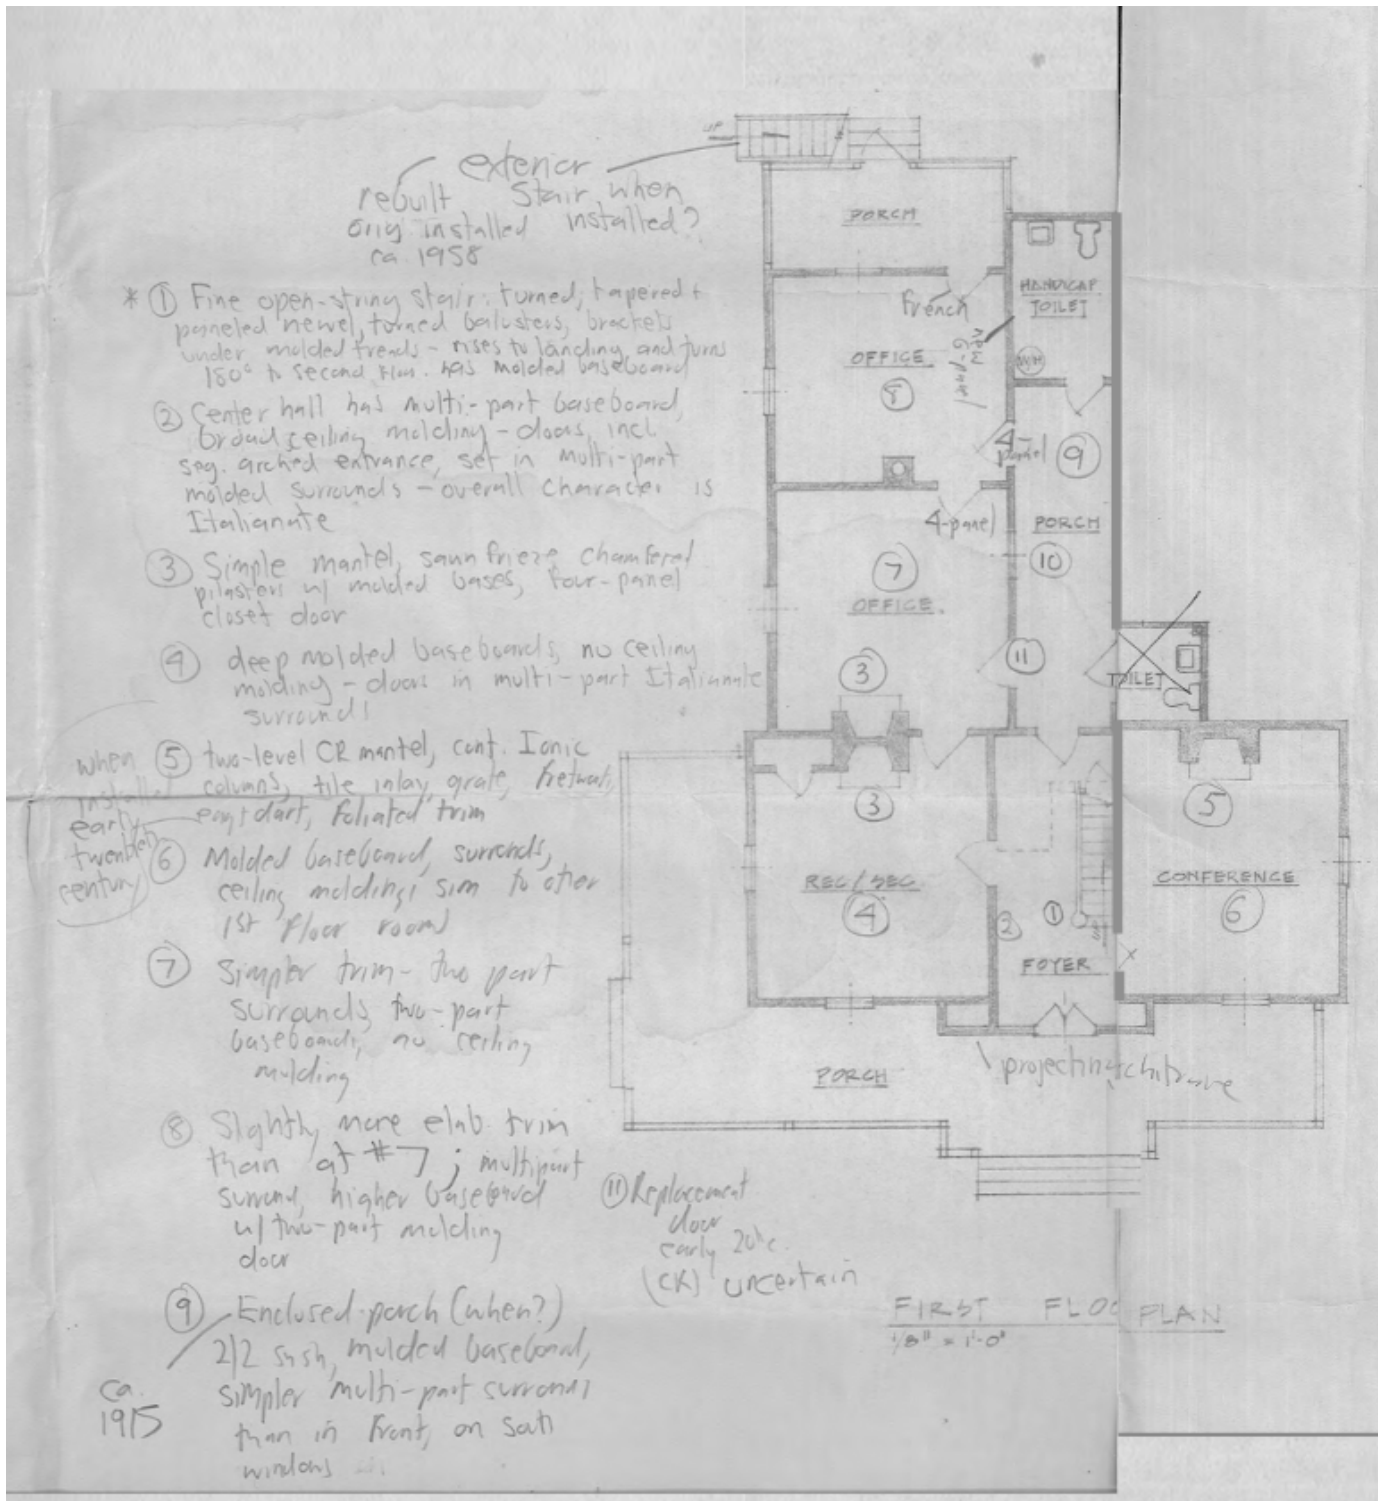 exterior
rebuilt stair when
orig. installed installed?
ca 1958
* ① Fine open-string stair: turned, tapered +
paneled newel, turned balusters, brackets
under molded treads - rises to landing and turns
180° to second flr. has molded baseboard
② Center hall has multi-part baseboard,
broad ceiling molding - doors, incl
seg. arched entrance, set in multi-part
molded surrounds - overall character is
Italianate
③ Simple mantel, sawn frieze, chamfered
pilasters w/ molded bases, four-panel
closet door
④ deep molded baseboards, no ceiling
molding - doors in multi-part Italianate
surrounds
⑤ two-level CR mantel, cont. Ionic
columns, tile inlay, grate, fretwork,
egg + dart, foliated trim
when
installed
early
twentieth
century
⑥ Molded baseboard, surrounds,
ceiling moldings sim to other
1st floor room
⑦ Simpler trim - two part
surrounds, two-part
baseboards, no ceiling
molding
⑧ Slightly more elab. trim
than at #7; multipart
surround, higher baseboard
w/ two-part molding
door
⑨ Enclosed porch (when?)
2/2 sash, molded baseboard,
simpler multi-part surrounds
than in front, on south
windows
ca.
1915
⑪ Replacement
door
early 20th c.
(CR) uncertain
UP
PORCH
HANDICAP
TOILET
french
OFFICE
⑧
6-panel
new
W/H
4-panel
⑨
4-panel
PORCH
⑩
⑦
OFFICE
⑪
③
TOILET
③
⑤
REC/SEC
④
②
①
CONFERENCE
⑥
FOYER
PORCH
projecting architrave
FIRST FLOO PLAN
1/8" = 1'-0"